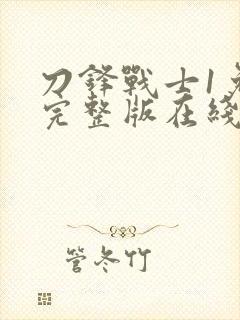 刀鋒戰士1免
完整版在綫
管冬竹